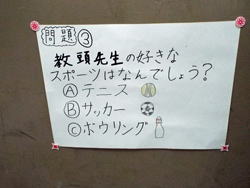 問題③
教頭先生の好きな
スポーツはなんでしょう?
Ⓐテニス
Ⓑサッカー
Ⓒボウリング